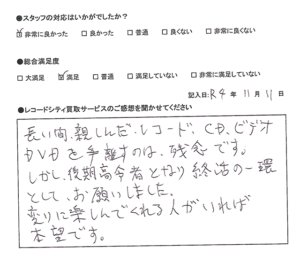 ●スタッフの対応はいかがでしたか?
☑非常に良かった □良かった □普通 □良くない □非常に良くない
●総合満足度
□大満足 ☑満足 □普通 □満足していない □非常に満足していない
記入日:R4年11月11日
●レコードシティ買取サービスのご感想を聞かせてください
長い間、親しんだ・レコード、CD、ビデオ
DVDを手離すのは、残念です。
しかし、後期高令者となり終活の一環
として、お願いしました。
変りに楽しんでくれる人がいれば
本望です。